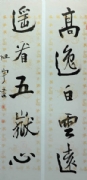 高逸白雲遠
遥省五嶽心